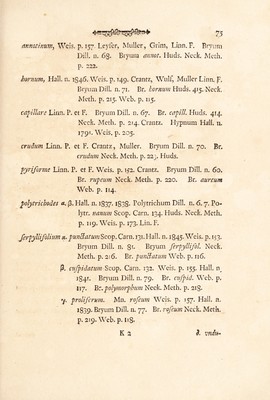 75
annotinum, Weis. p. 157. Leyser, Muller, Grim, Linn. F. Bryum
Dill. n. 68. Bryum annot. Huds. Neck. Meth.
p. 222.
hornum, Hall. n. 1846. Weis. p. 149. Crantz, Wulf, Muller Linn. F.
Bryum Dill. n. 71. Br. hornum Huds. 415. Neck.
Meth. p. 215. Web. p. 115.
capillare Linn. P. et F. Bryum Dill. n. 67. Br. capill. Huds. 414.
Neck. Meth. p. 214. Crantz. Hypnum Hall. n.
1791. Weis, p. 205.
crudum Linn. P. et F. Crantz, Muller. Bryum Dill. n. 70. Br.
crudum Neck. Meth. p. 223. Huds.
pyriforme Linn. P. et F. Weis. p. 152. Crantz. Bryum Dill. n. 60.
Br. rupeum Neck. Meth. p. 220. Br. aureum
Web. p. 114.
polytrichodes α. β. Hall. n. 1837. 1838. Polytrichum Dill. n. 6. 7. Po-
lytr. nanum Scop. Carn. 134. Huds. Neck. Meth.
p. 119. Weis. p. 173. Lin F.
serpyllifolium α. punctatum Scop. Carn. 131. Hall. n. 1845. Weis. p. 153.
Bryum Dill. n. 81. Bryum serpyllifol. Neck.
Meth. p. 216. Br. punctatum Web. p. 116.
β. cuspidatum Scop. Carn. 132. Weis. p. 155. Hall. n.
1841. Bryum Dill. n. 79. Br. cuspid. Web. p.
117. Br. polymorphum Neck. Meth. p. 218.
γ. proliferum. Mn. roseum Weis. p. 157. Hall. n.
1839. Bryum Dill. n. 77. Br. roseum Neck. Meth.
p. 219. Web. p. 118.
K 2 δ. undu-